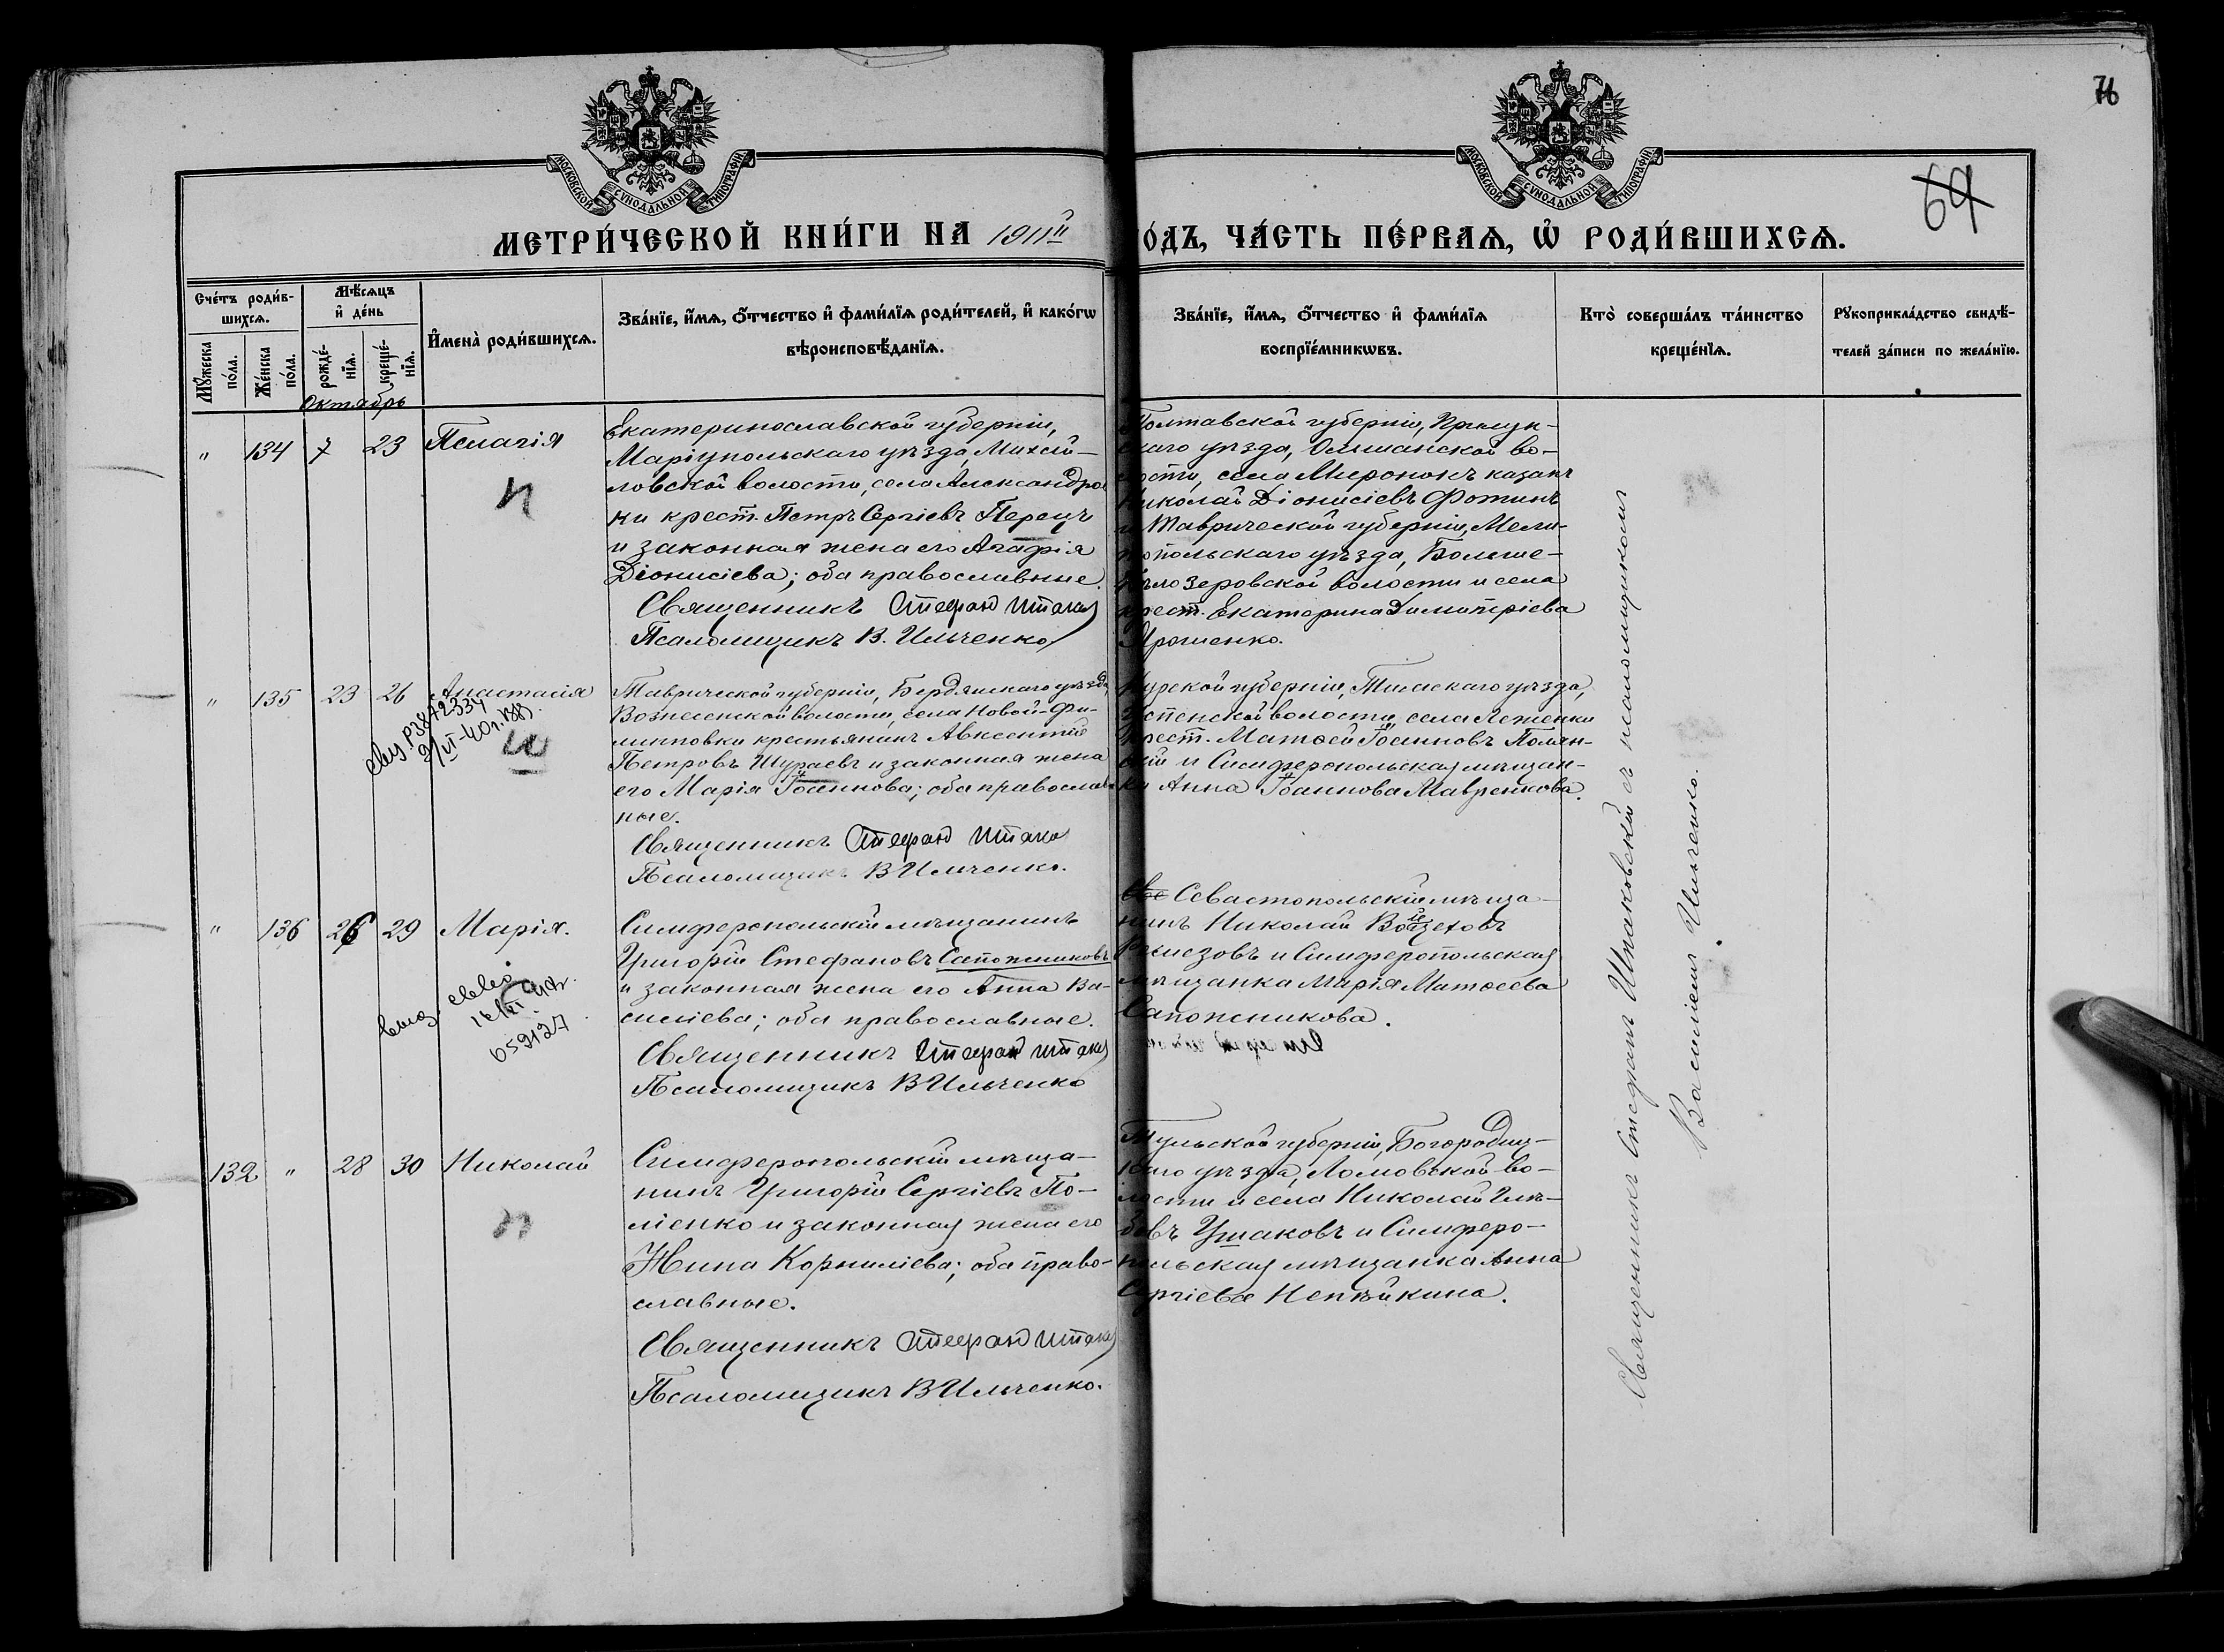 76
69
МОСКОВСКОЙ СѴНОДАЛЬНОЙ ТИПОГРАФІИ
МОСКОВСКОЙ СѴНОДАЛЬНОЙ ТИПОГРАФІИ
МЕТРИ́ЧЕСКОЙ КНИ́ГИ НА 1911й
О́ДЪ, ЧА́СТЬ ПЕ́РВАѦ, Ѡ҆ РОДИ́ВШИХСѦ.
Сче́тъ роди́в-
шихсѧ.
Мꙋ́жеска по́ла.
Же́нска по́ла.
Мѣ́сѧцъ
и҆ де́нь
рожде́-
нїѧ.
креще́-
нїѧ.
И҆мена̀ роди́вшихсѧ.
Зва́нїе, и҆́мѧ, ѻ҆́тчество и҆ фами́лїѧ роди́телей, и҆ како́гѡ
вѣроисповѣ́данїѧ.
Зва́нїе, и҆́мѧ, ѻ҆́тчество и҆ фами́лїѧ
воспрїе́мникѡвъ.
Кто̀ соверша́лъ та́инство
креще́нїѧ.
Рꙋкоприкла́дство свидѣ́-
телей за́писи по жела́нїю.
Октябрь
" 134 7 23 Пелагія
п
Екатеринославской губерніи,
Маріупольскаго уѣзда, Михай-
ловской волости, села Александров
ки крест. Петръ Сергіевъ Перецъ
и законная жена его Агафія
Діонисіева; оба православные.
Священникъ Стефанъ Шпак
Псаломщикъ В. Ильченко
Полтавской губерніи, Прилук-
скаго уѣзда, Олшанской во-
лости, села Миронокъ казакъ
Николай Діонисіевъ Фотинъ
и Таврической губерніи, Мели-
топольскаго уѣзда, Больше-
бѣлозеровской волости и села
крест. Екатерина Димитріева
Ярошенко.
" 135 23 26 Анастасія
ш
Таврической губерніи, Бердянскаго уѣзда,
Вознесенской волости, села Новой-Фи-
липповки крестьянинъ Авксентій
Петровъ Шураевъ и законная жена
его Марія Іоаннова; оба православ
ные.
Священникъ Стефанъ Шпако
Псаломщикъ В Ильченко.
Курской губерніи, Тимскаго уѣзда,
Успенской волости, села Леженки
крест. Матѳей Іоанновъ Полян-
скій и Симферопольская мѣщан-
ка Анна Іоаннова Мавренкова.
" 136 26 29 Марія.
выд.
659127
Симферопольскій мѣщанинъ
Григорій Стефановъ Сапожниковъ
и законная жена его Анна Ва-
силіева; оба православные.
Священникъ Стефанъ Шпак
Псаломщикъ В Ильченко
Севастопольскій мѣща-
нинъ Николай
и Симферопольская
мѣщанка Марія Матѳеева
Сапожникова.
132 " 28 30 Николай
п
Симферопольскій мѣща-
нинъ Григорій Сергіевъ По-
ліенко и законная жена его
Нина Корниліева; оба право-
славные.
Священникъ Стефанъ Шпак
Псаломщикъ В Ильченко.
Тульской губерніи, Богородиц-
каго уѣзда, Ломовской во-
лости и села Николай Глѣ-
бовъ Ушаковъ и Симферо-
польская мѣщанка Анна
Сергіева Непѣйкина.
Священникъ Стефанъ Шпаковскій съ псаломщикомъ
Василіемъ Ильченко.